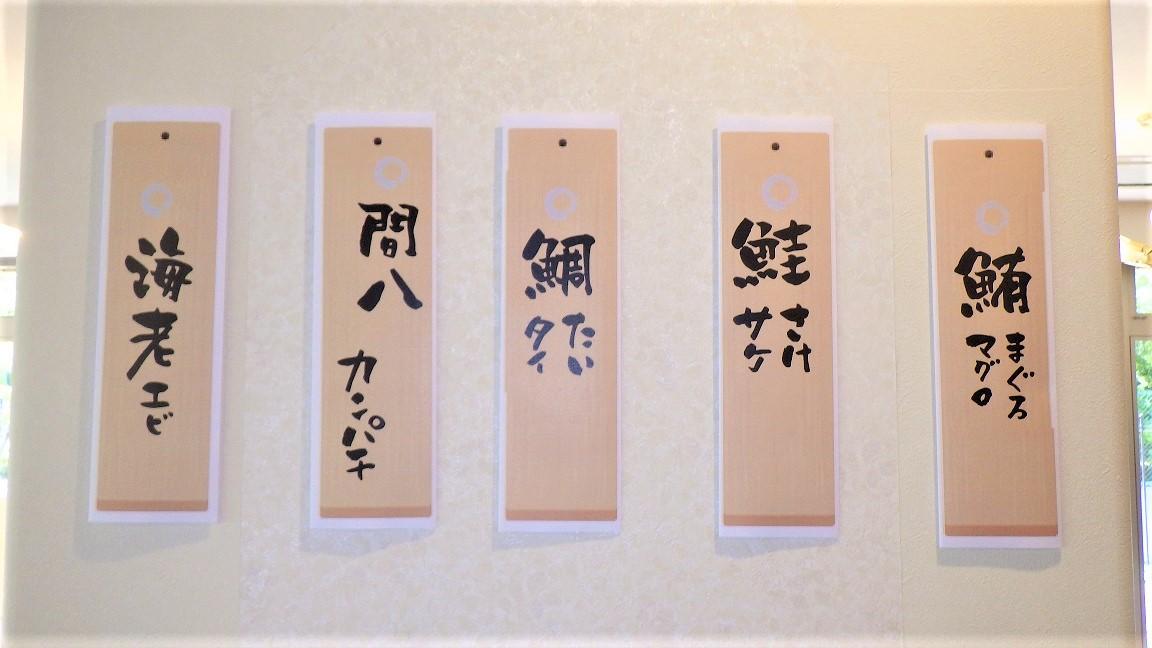 鮪
まぐろ
マグロ
鮭
さけ
サケ
鯛
たい
タイ
間八
カンパチ
海老
エビ